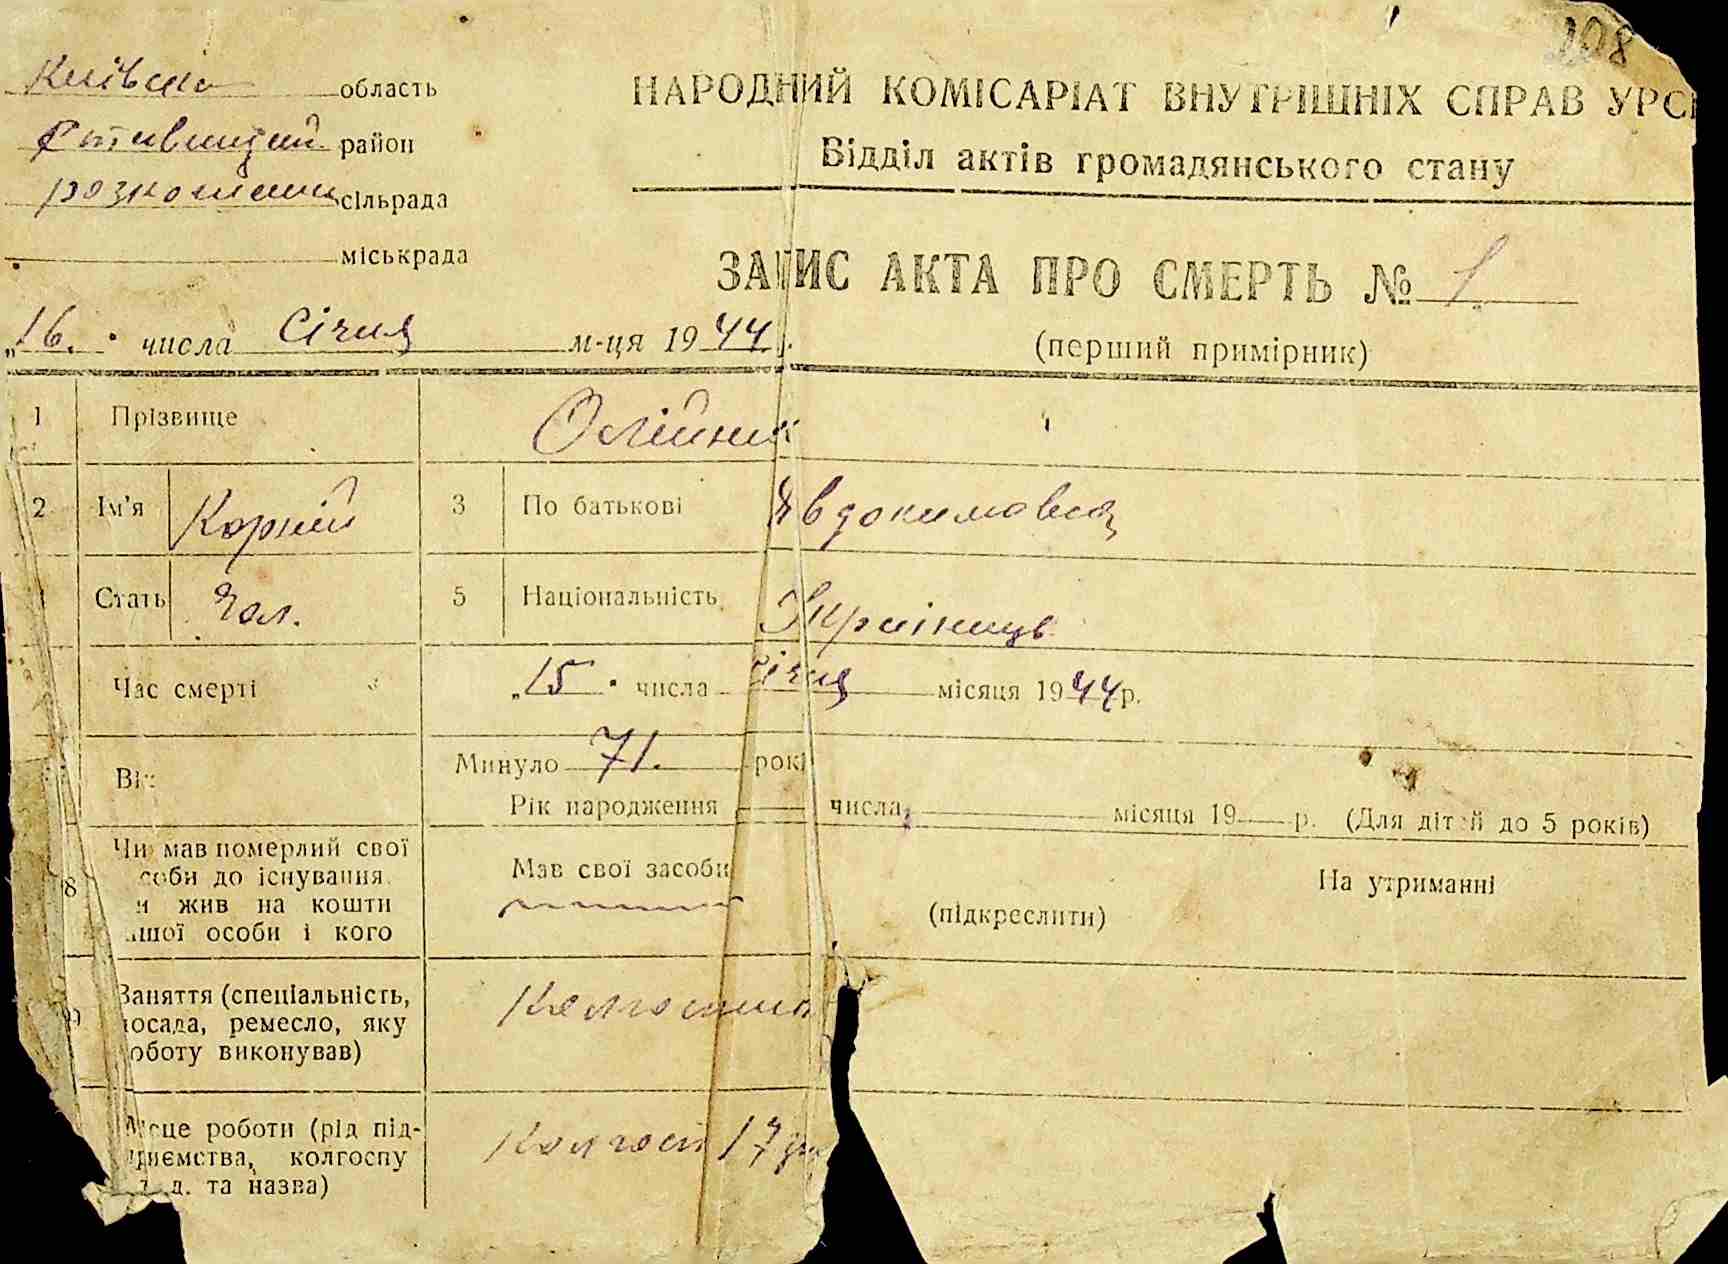 208
Київська область
НАРОДНИЙ КОМІСАРІАТ ВНУТРІШНІХ СПРАВ УРС
район
Відділ актів громадянського стану
сільрада
міськрада
ЗАПИС АКТА ПРО СМЕРТЬ № 1
„16." числа Січня м-ця 1944 р.
(перший примірник)
1 Прізвище Олійник
2 Ім'я Корній 3 По батькові Явдокимович
Стать Чол. 5 Національність Українець
Час смерті „15" числа січня місяця 1944 р.
Вік Минуло 71. рокі
Рік народження числа місяця 19 р. (Для дітей до 5 років)
8 Чи мав померлий свої
соби до існування.
и жив на кошти
ншої особи і кого
Мав свої засоби
(підкреслити)
На утриманні
9 Заняття (спеціальність,
посада, ремесло, яку
оботу виконував)
Колгоспник
Місце роботи (рід під-
приємства, колгоспу
т. д. та назва)
Колгосп 17